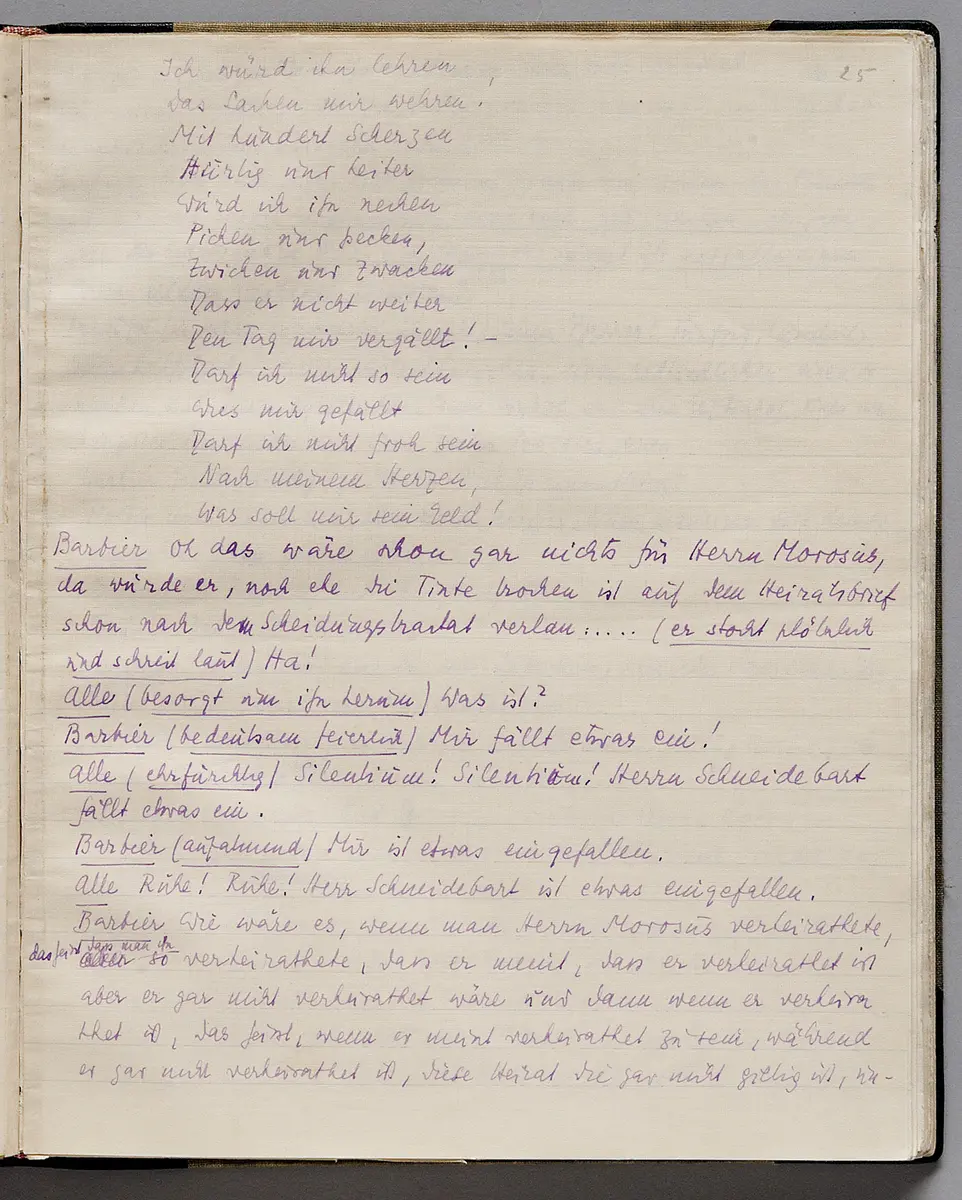 25
Ich würd ihn lehren,
Das Lachen mir wehren.
Mit hundert Scherzen
Hurtig und heiter
Würd ich ihn necken
Picken und pecken,
Zwicken und Zwacken
Dass er nicht weiter
Den Tag mir vergällt! –
Darf ich nicht so sein
Wies mir gefällt
Darf ich nicht froh sein
Nach meinem Herzen,
Was soll mir sein Geld!
Barbier Oh das wäre schon gar nichts für Herrn Morosus,
da würde er, noch ehe die Tinte trocken ist auf dem Heiratsbrief
schon nach dem Scheidungstractat verlan : .... (er stockt plötzlich
und schreit laut) Ha!
Alle (besorgt um ihn herum) Was ist?
Barbier (bedeutsam feierlich) Mir fällt etwas ein!
Alle (ehrfürchtig) Silentium! Silentium! Herrn Schneidebart
fällt etwas ein.
Barbier (aufatmend) Mir ist etwas eingefallen.
Alle Ruhe! Ruhe! Herr Schneidebart ist etwas eingefallen.
Barbier Wie wäre es, wenn man Herrn Morosus verheirathete,
das heisst dass man ihn
so verheirathete, dass er meint, dass er verheirathet ist
aber er gar nicht verheirathet wäre und dann wenn er verheira
thet ist, das heisst, wenn er meint verheirathet zu sein, während
er gar nicht verheirathet ist, diese Heirat die gar nicht giltig ist, un-